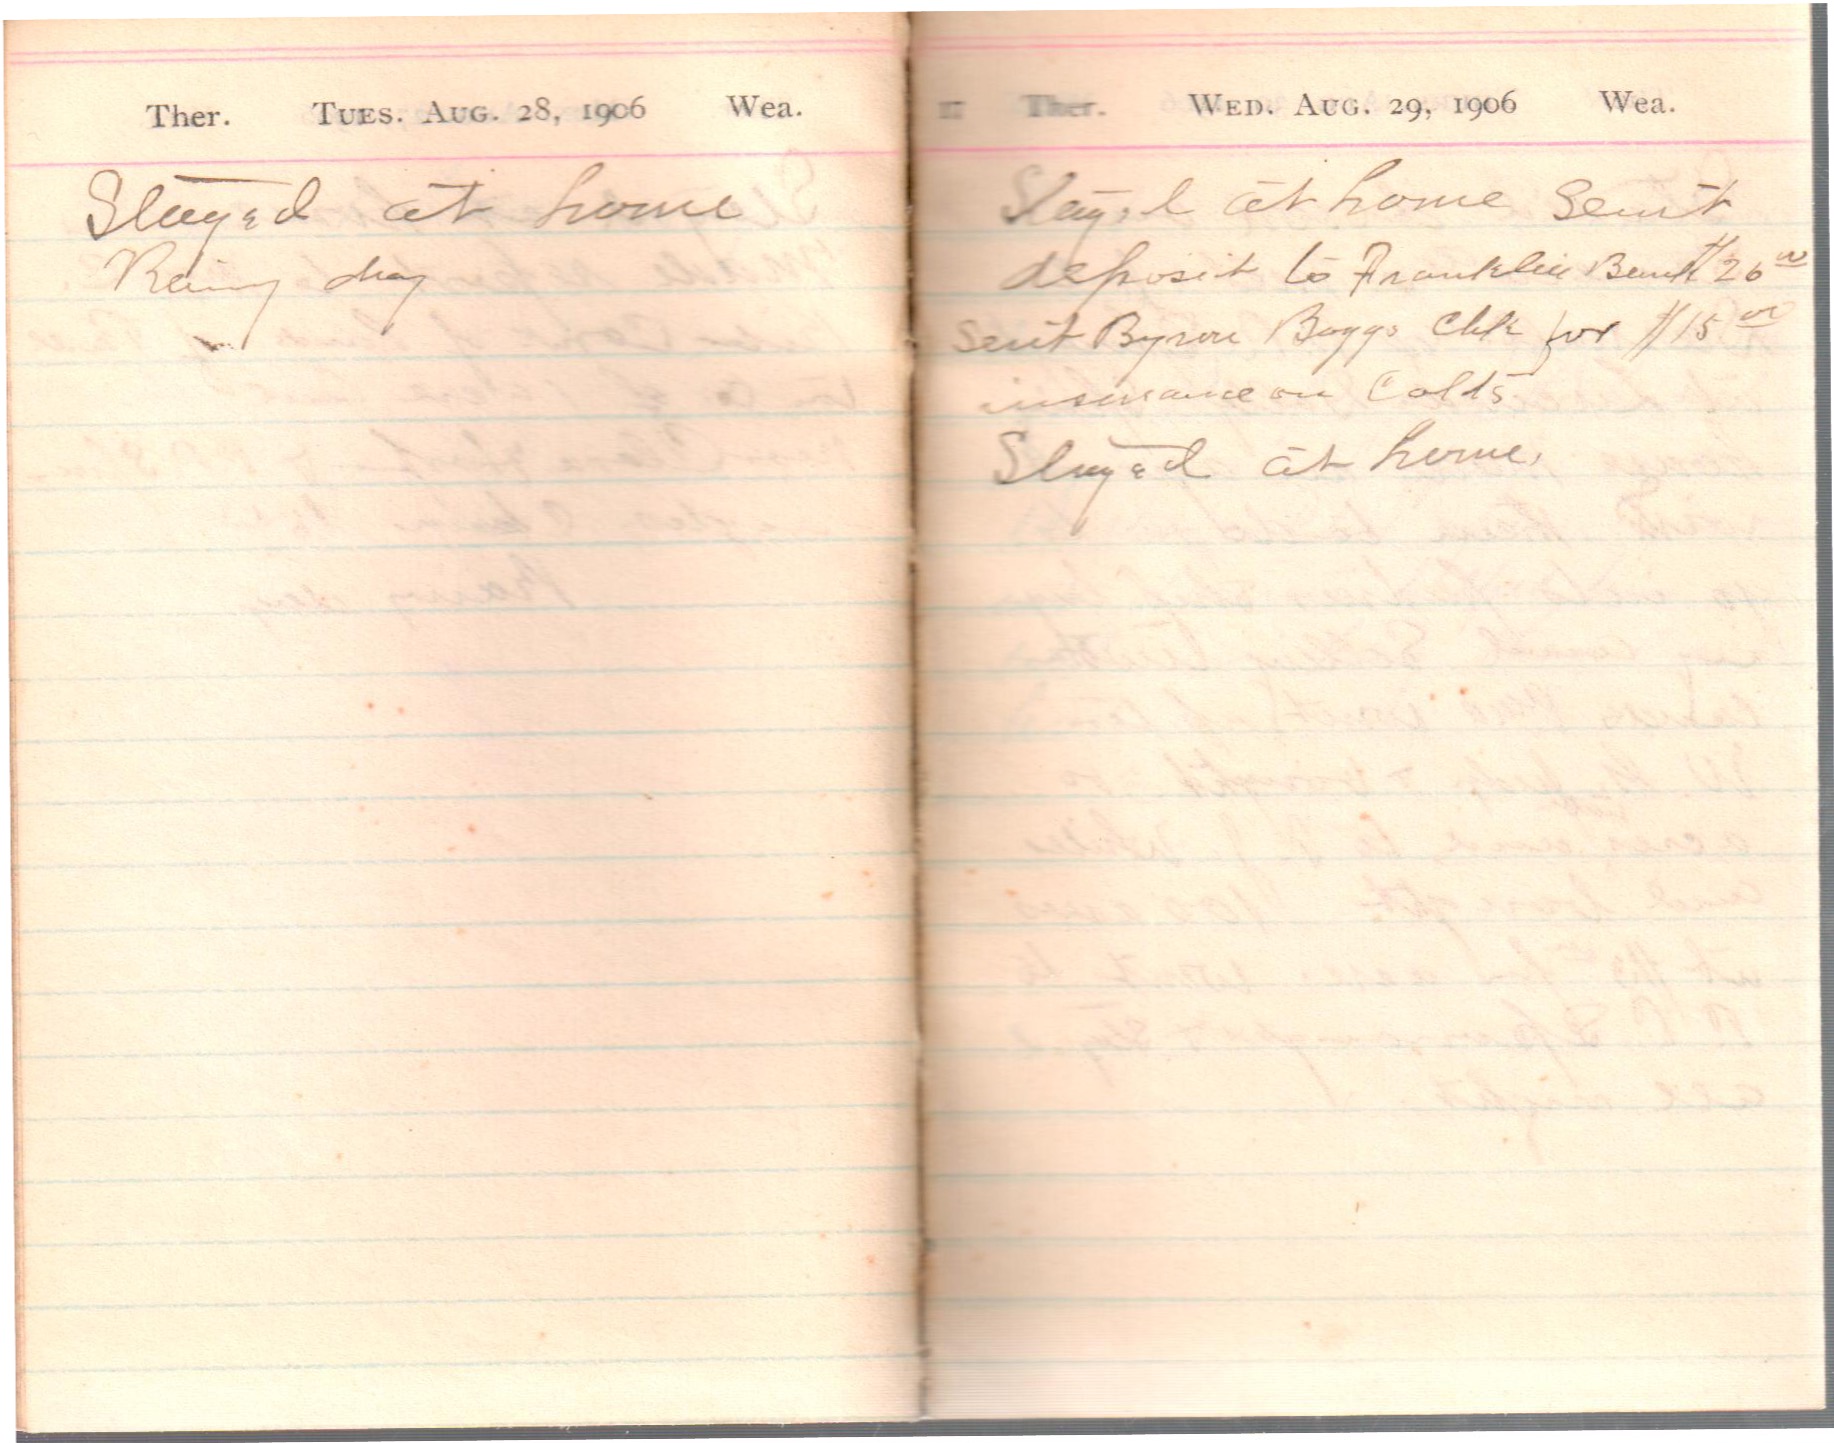 Ther. TUES. AUG. 28, 1906 Wea.
Stayed at home
Rainy day
Ther. WED. AUG. 29, 1906 Wea.
Stayed at home Sent
deposit to Franklin Bank $26 00
Sent Byron Boggs Chk for $15 00
insurance on Colts
Stayed at home.